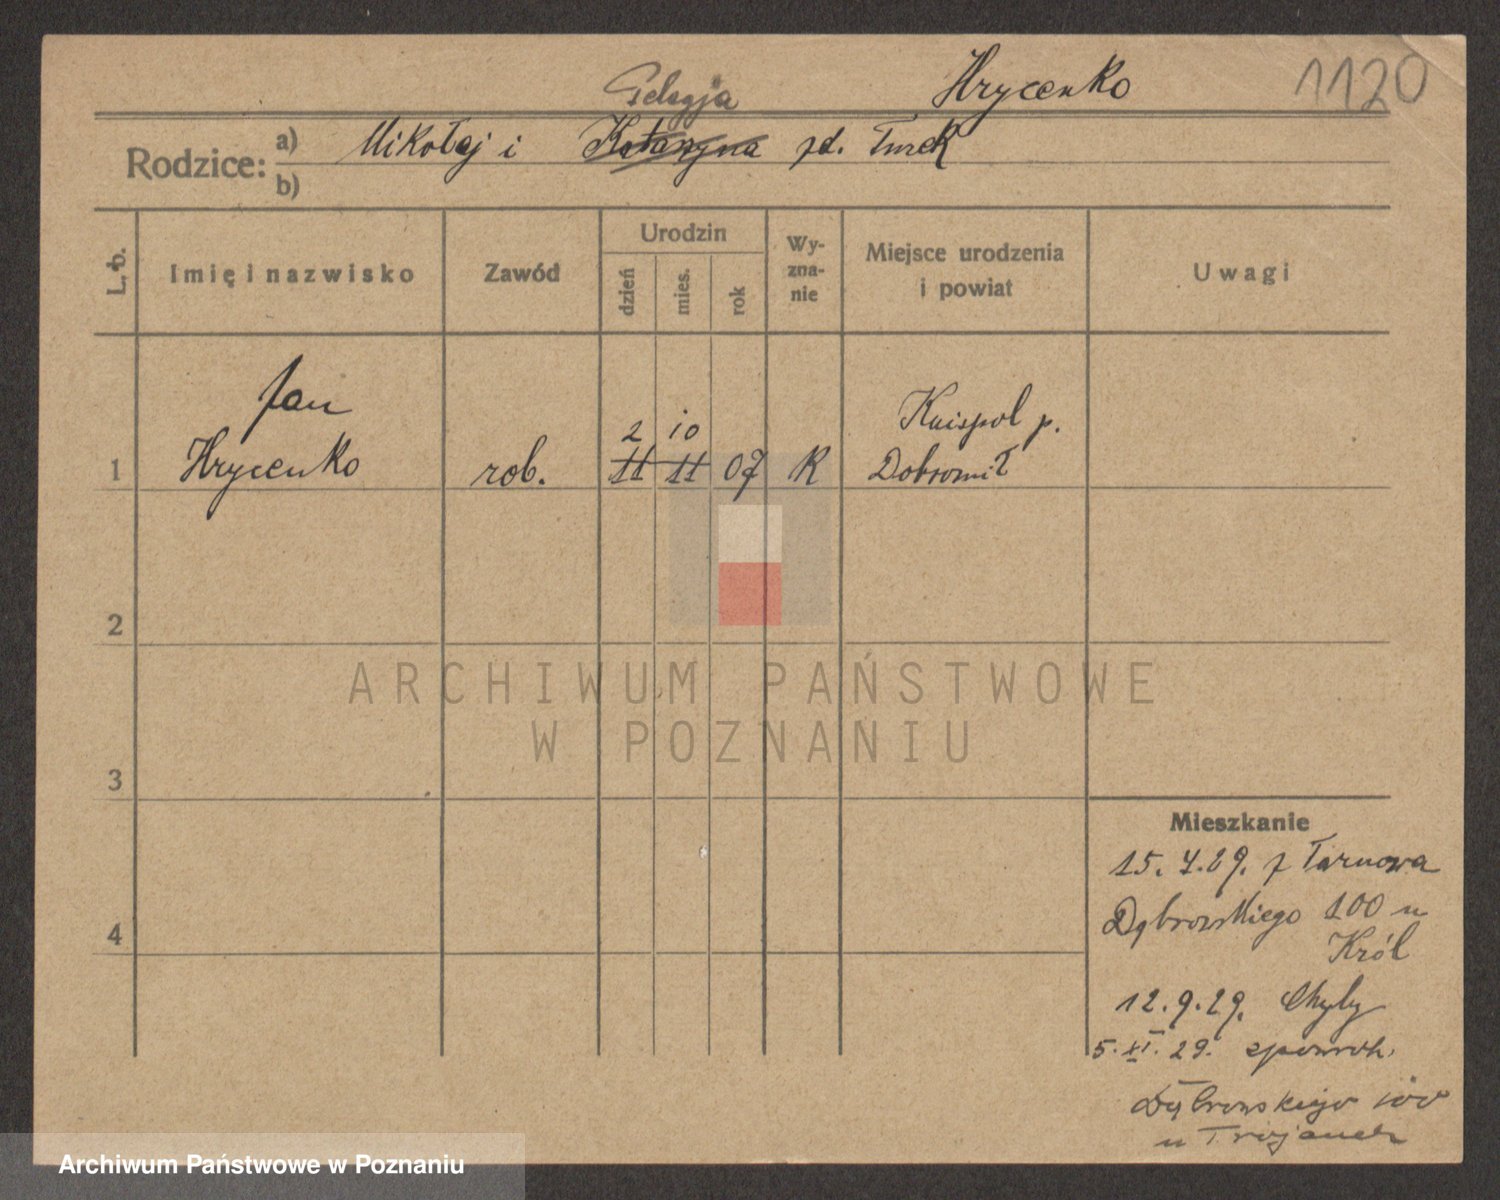 Hrycenko 1120
Pelagja
Rodzice: a) Mikołaj i Katarzyna zd. Turek
b)
L. b.
Imię i nazwisko
Zawód
Urodzin
dzień
mies.
rok
Wy-
zna-
nie
Miejsce urodzenia
i powiat
Uwagi
1
Jan
Hrycenko
rob.
2 10
11 11 07
K
Knispol p.
Dobromil
2
3
4
Mieszkanie
15. 4. 29. z Tarnowa
Dąbrowskiego 100 u
Król
12. 9. 29. Chyby
5. XI. 29. z powrot.
Dąbrowskiego 100
u Trojanek
ARCHIWUM PAŃSTWOWE
W POZNANIU
Archiwum Państwowe w Poznaniu